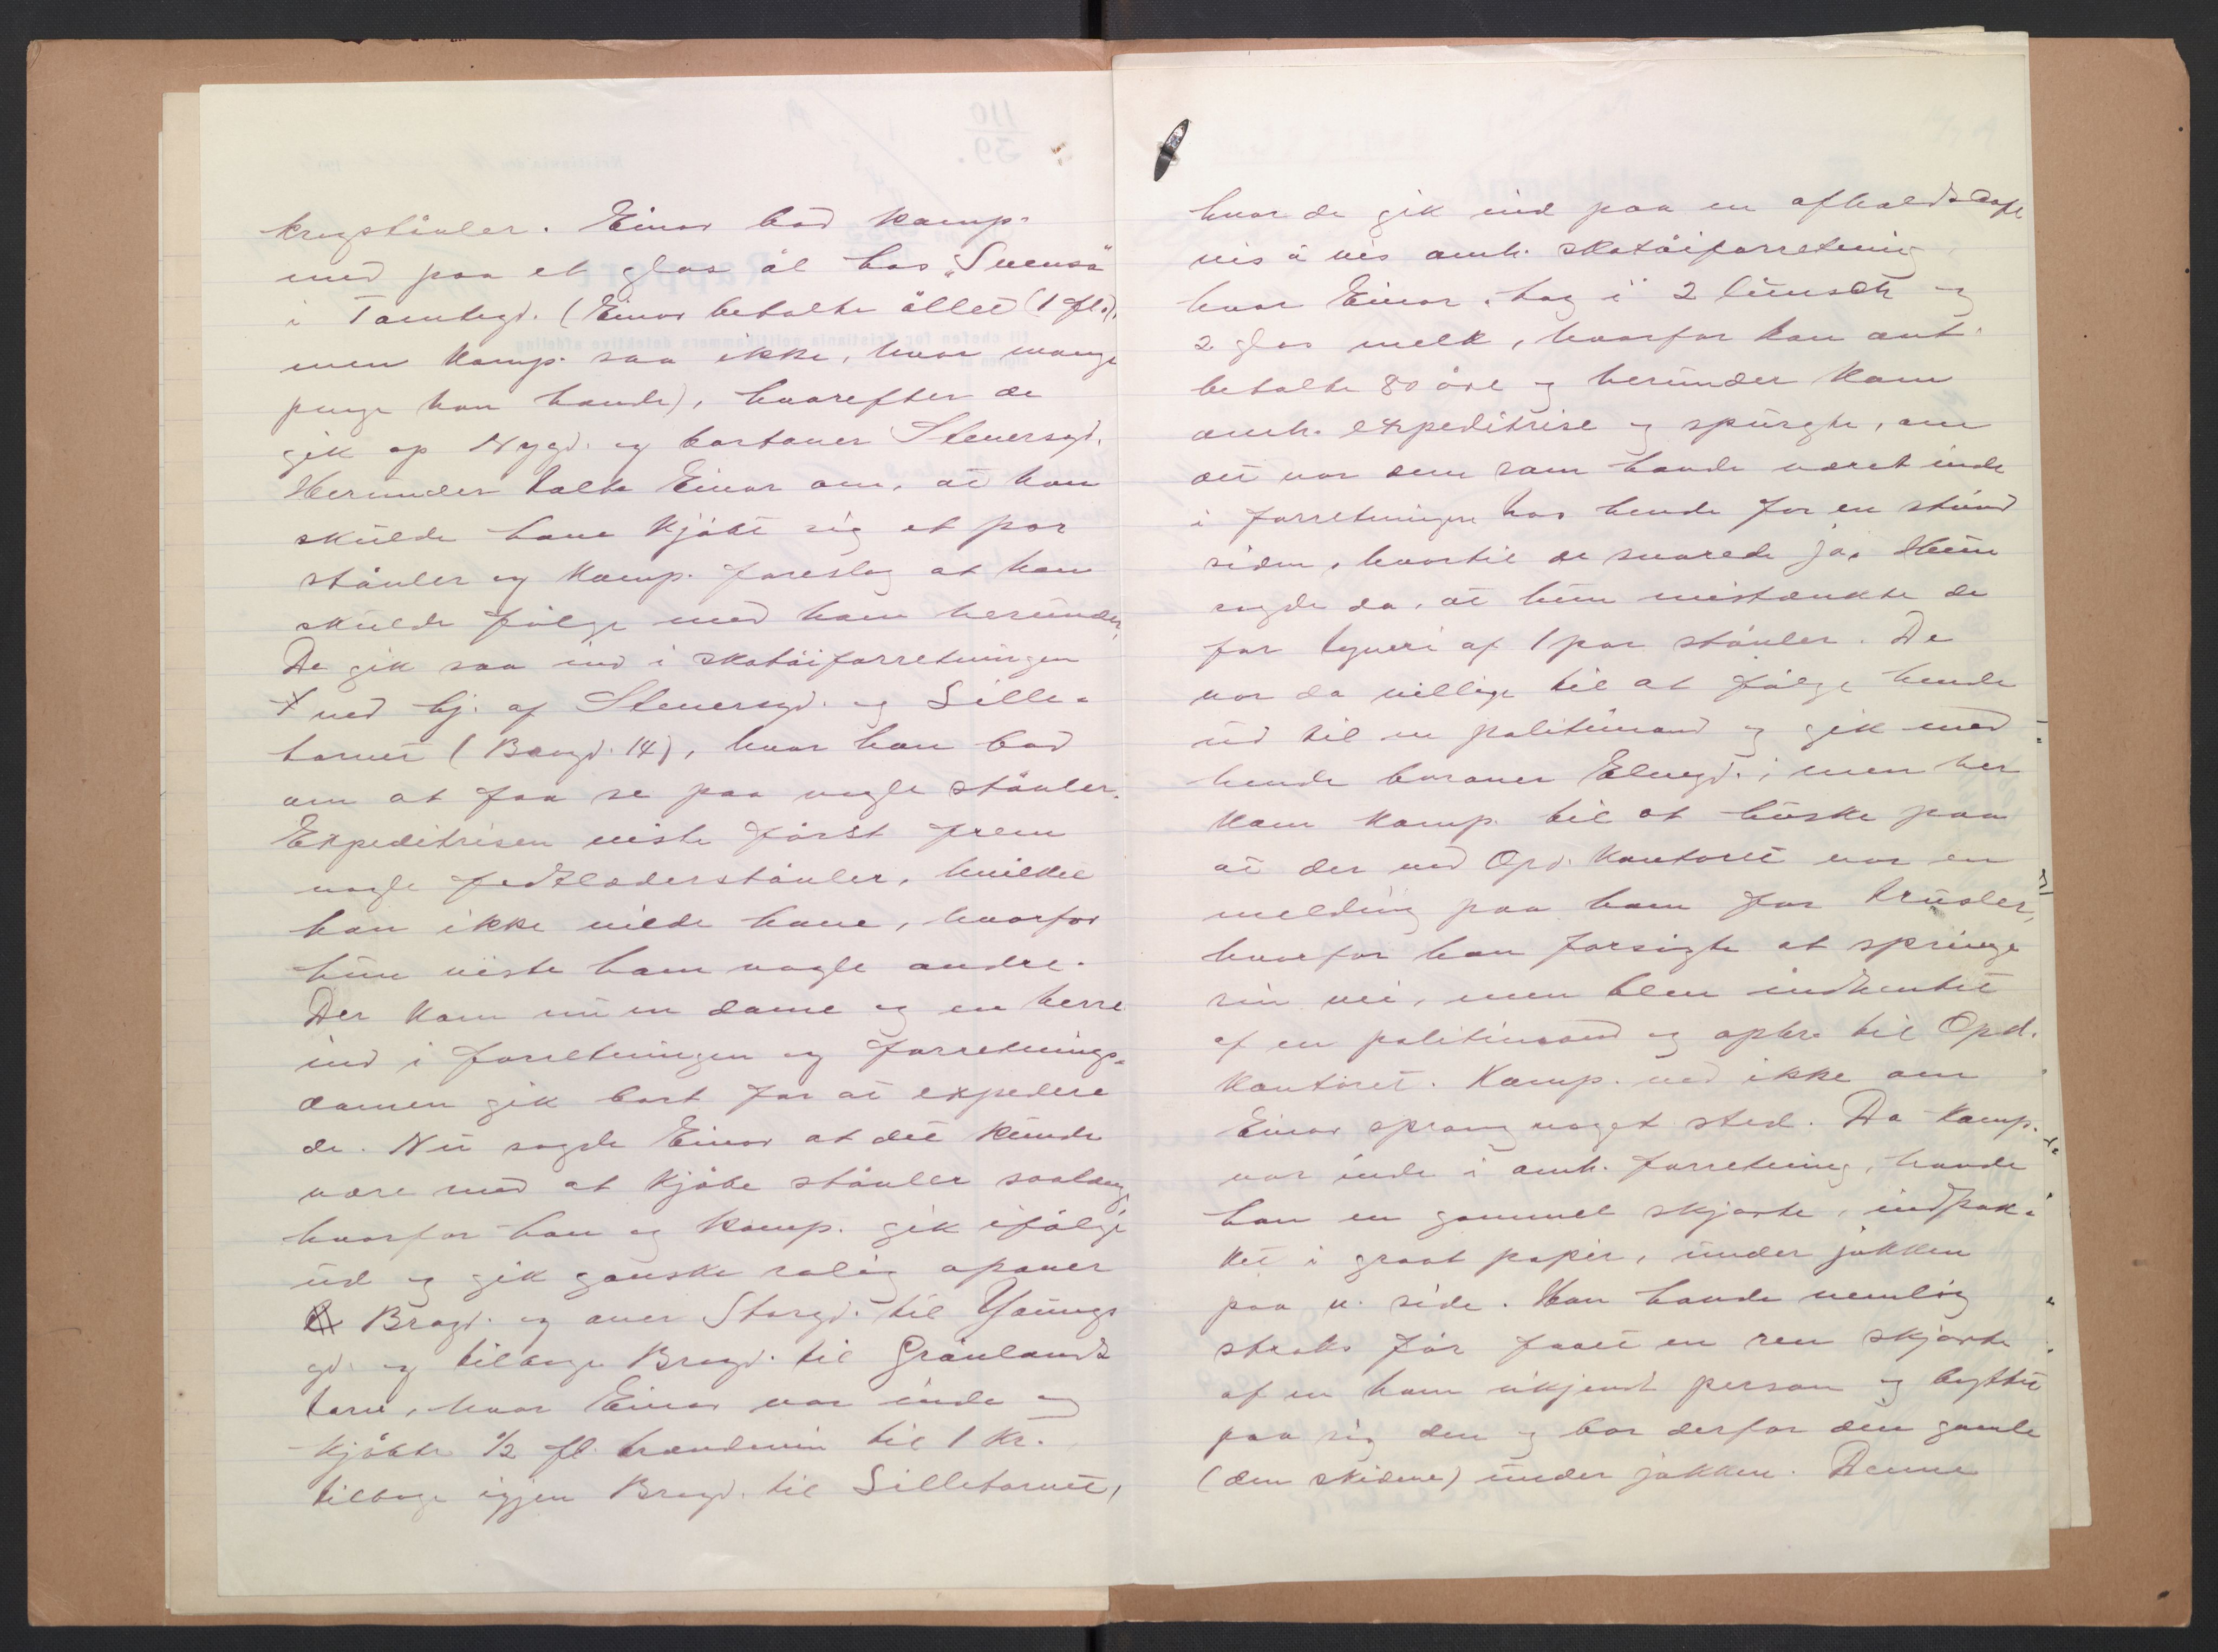 krogstövler. Einar bad Komp.
med paa et glas øl hos "Svensö"
i Tomtegd. (Einar betalte øllet (1 fl.),
men Komp. saa ikke, hvor mange
penge han havde), hvorefter de
gik op Nygd. og bortover Stenersgd.
Herunder talte Einar om, at han
skulde have kjøbt sig et par
støvler og Komp. foreslog at han
skulde følge med ham herunder,
De gik saa ind i skotøiforretningen
ved hj. af Stenersgd. og Lille-
torvet (Brogd. 14), hvor han bad
om at faa se paa nogle støvler.
Expeditrisen viste først frem
nogle fedtlæderstøvler, hvilke
han ikke vilde have, hvorfor
hun viste ham nogle andre.
Der kom nu en dame og en herre
ind i forretningen og forretnings-
damen gik bort for at expedere
de. Nu sagde Einar at det kunde
være med at kjøbe støvler saalæng
hvorfor han og Komp. gik ifølge
ud og gik ganske rolig opover
Brogd. og over Storgd. til Youngs
gd. og tilbage Brogd. til Grønlands
torv, hvor Einar var inde og
kjøbte ½ fl. brændevin til 1 kr.
tilbage igjen Brogd. til Lilletorvet,
hvor de gik ind paa en afholdscafe
vis á vis anh. skotøiforretning
hvor Einar tog i 2 lunsch og
2 glas melk, hvorfor han ant.
betalte 80 øre og herunder kom
omh. expeditrise og spurgte, om
det var dem som havde været inde
i forretningen hos hende for en stund
siden, hvortil de svarede ja. Hun
sagde da, at hun mistænkte de
for tyveri af 1 par støvler. De
var da villige til at følge hende
ud til en politimand og gik med
hende borover Elvegd.; men her
kom Komp. til at huske paa
at der ved Opd. Kontoret var en
melding paa ham for trusler,
hvorfor han forsøgte at springe
sin vei, men blev indhentet
af en politimand og opbr. til Opd.
Kontoret. Komp. ved ikke om
Einar sprang noget sted. Da Komp.
var inde i omh. forretning, havde
han en gammel skjorte, indpak-
ket i graat papir, under jakken
paa v. side. Han havde nemlig
straks før faaet en ren skjorte
af en ham ukjendt person og byttet
paa sig den og bar derfor den gamle
(den skidne) under jakken. Denne